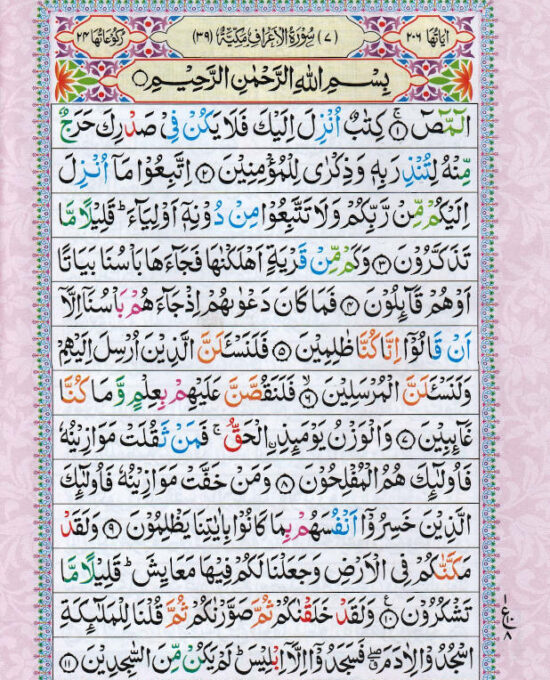 اٰیَاتُهَا ۲۰۶ (۷) سُوْرَةُ الْاَعْرَافِ مَكِّیَّةٌ (۳۹) رُكُوْعَاتُهَا ۲۴
بِسْمِ اللّٰهِ الرَّحْمٰنِ الرَّحِیْمِ
الٓمّٓصٓ ۱ كِتٰبٌ اُنْزِلَ اِلَیْكَ فَلَا یَكُنْ فِیْ صَدْرِكَ حَرَجٌ
مِّنْهُ لِتُنْذِرَ بِهٖ وَ ذِكْرٰی لِلْمُؤْمِنِیْنَ ۲ اِتَّبِعُوْا مَاۤ اُنْزِلَ
اِلَیْكُمْ مِّنْ رَّبِّكُمْ وَ لَا تَتَّبِعُوْا مِنْ دُوْنِهٖۤ اَوْلِیَآءَ ؕ قَلِیْلًا مَّا
تَذَكَّرُوْنَ ۳ وَ كَمْ مِّنْ قَرْیَةٍ اَهْلَكْنٰهَا فَجَآءَهَا بَاْسُنَا بَیَاتًا
اَوْ هُمْ قَآىِٕلُوْنَ ۴ فَمَا كَانَ دَعْوٰىهُمْ اِذْ جَآءَهُمْ بَاْسُنَاۤ اِلَّاۤ
اَنْ قَالُوْۤا اِنَّا كُنَّا ظٰلِمِیْنَ ۵ فَلَنَسْـَٔلَنَّ الَّذِیْنَ اُرْسِلَ اِلَیْهِمْ
وَ لَنَسْـَٔلَنَّ الْمُرْسَلِیْنَ ۶ فَلَنَقُصَّنَّ عَلَیْهِمْ بِعِلْمٍ وَّ مَا كُنَّا
غَآىِٕبِیْنَ ۷ وَ الْوَزْنُ یَوْمَىِٕذِ ِ۟الْحَقُّ ۚ فَمَنْ ثَقُلَتْ مَوَازِیْنُهٗ
فَاُولٰٓىِٕكَ هُمُ الْمُفْلِحُوْنَ ۸ وَ مَنْ خَفَّتْ مَوَازِیْنُهٗ فَاُولٰٓىِٕكَ
الَّذِیْنَ خَسِرُوْۤا اَنْفُسَهُمْ بِمَا كَانُوْا بِاٰیٰتِنَا یَظْلِمُوْنَ ۹ وَ لَقَدْ
مَكَّنّٰكُمْ فِی الْاَرْضِ وَ جَعَلْنَا لَكُمْ فِیْهَا مَعَایِشَ ؕ قَلِیْلًا مَّا
تَشْكُرُوْنَ ۱۰ وَ لَقَدْ خَلَقْنٰكُمْ ثُمَّ صَوَّرْنٰكُمْ ثُمَّ قُلْنَا لِلْمَلٰٓىِٕكَةِ
اسْجُدُوْا لِاٰدَمَ ۖۗ فَسَجَدُوْۤا اِلَّاۤ اِبْلِیْسَ ؕ لَمْ یَكُنْ مِّنَ السّٰجِدِیْنَ ۱۱